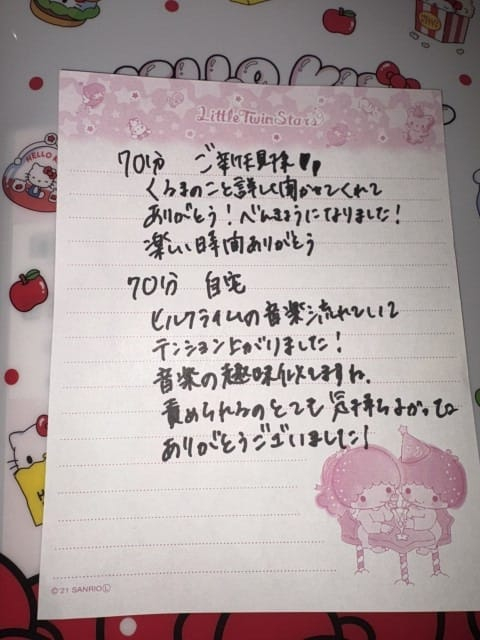 LittleTwinStars
70分 ご新規様
くるまのこと詳しく聞かせてくれて
ありがとう!べんきょうになりました!
楽しい時間ありがとう
70分 自宅
ヒルクライムの音楽流れていて
テンション上がりました!
音楽の趣味似てますね.
責められるのとても気持ちよかって
ありがとうございました!
©'21 SANRIO Ⓛ
HELLO K